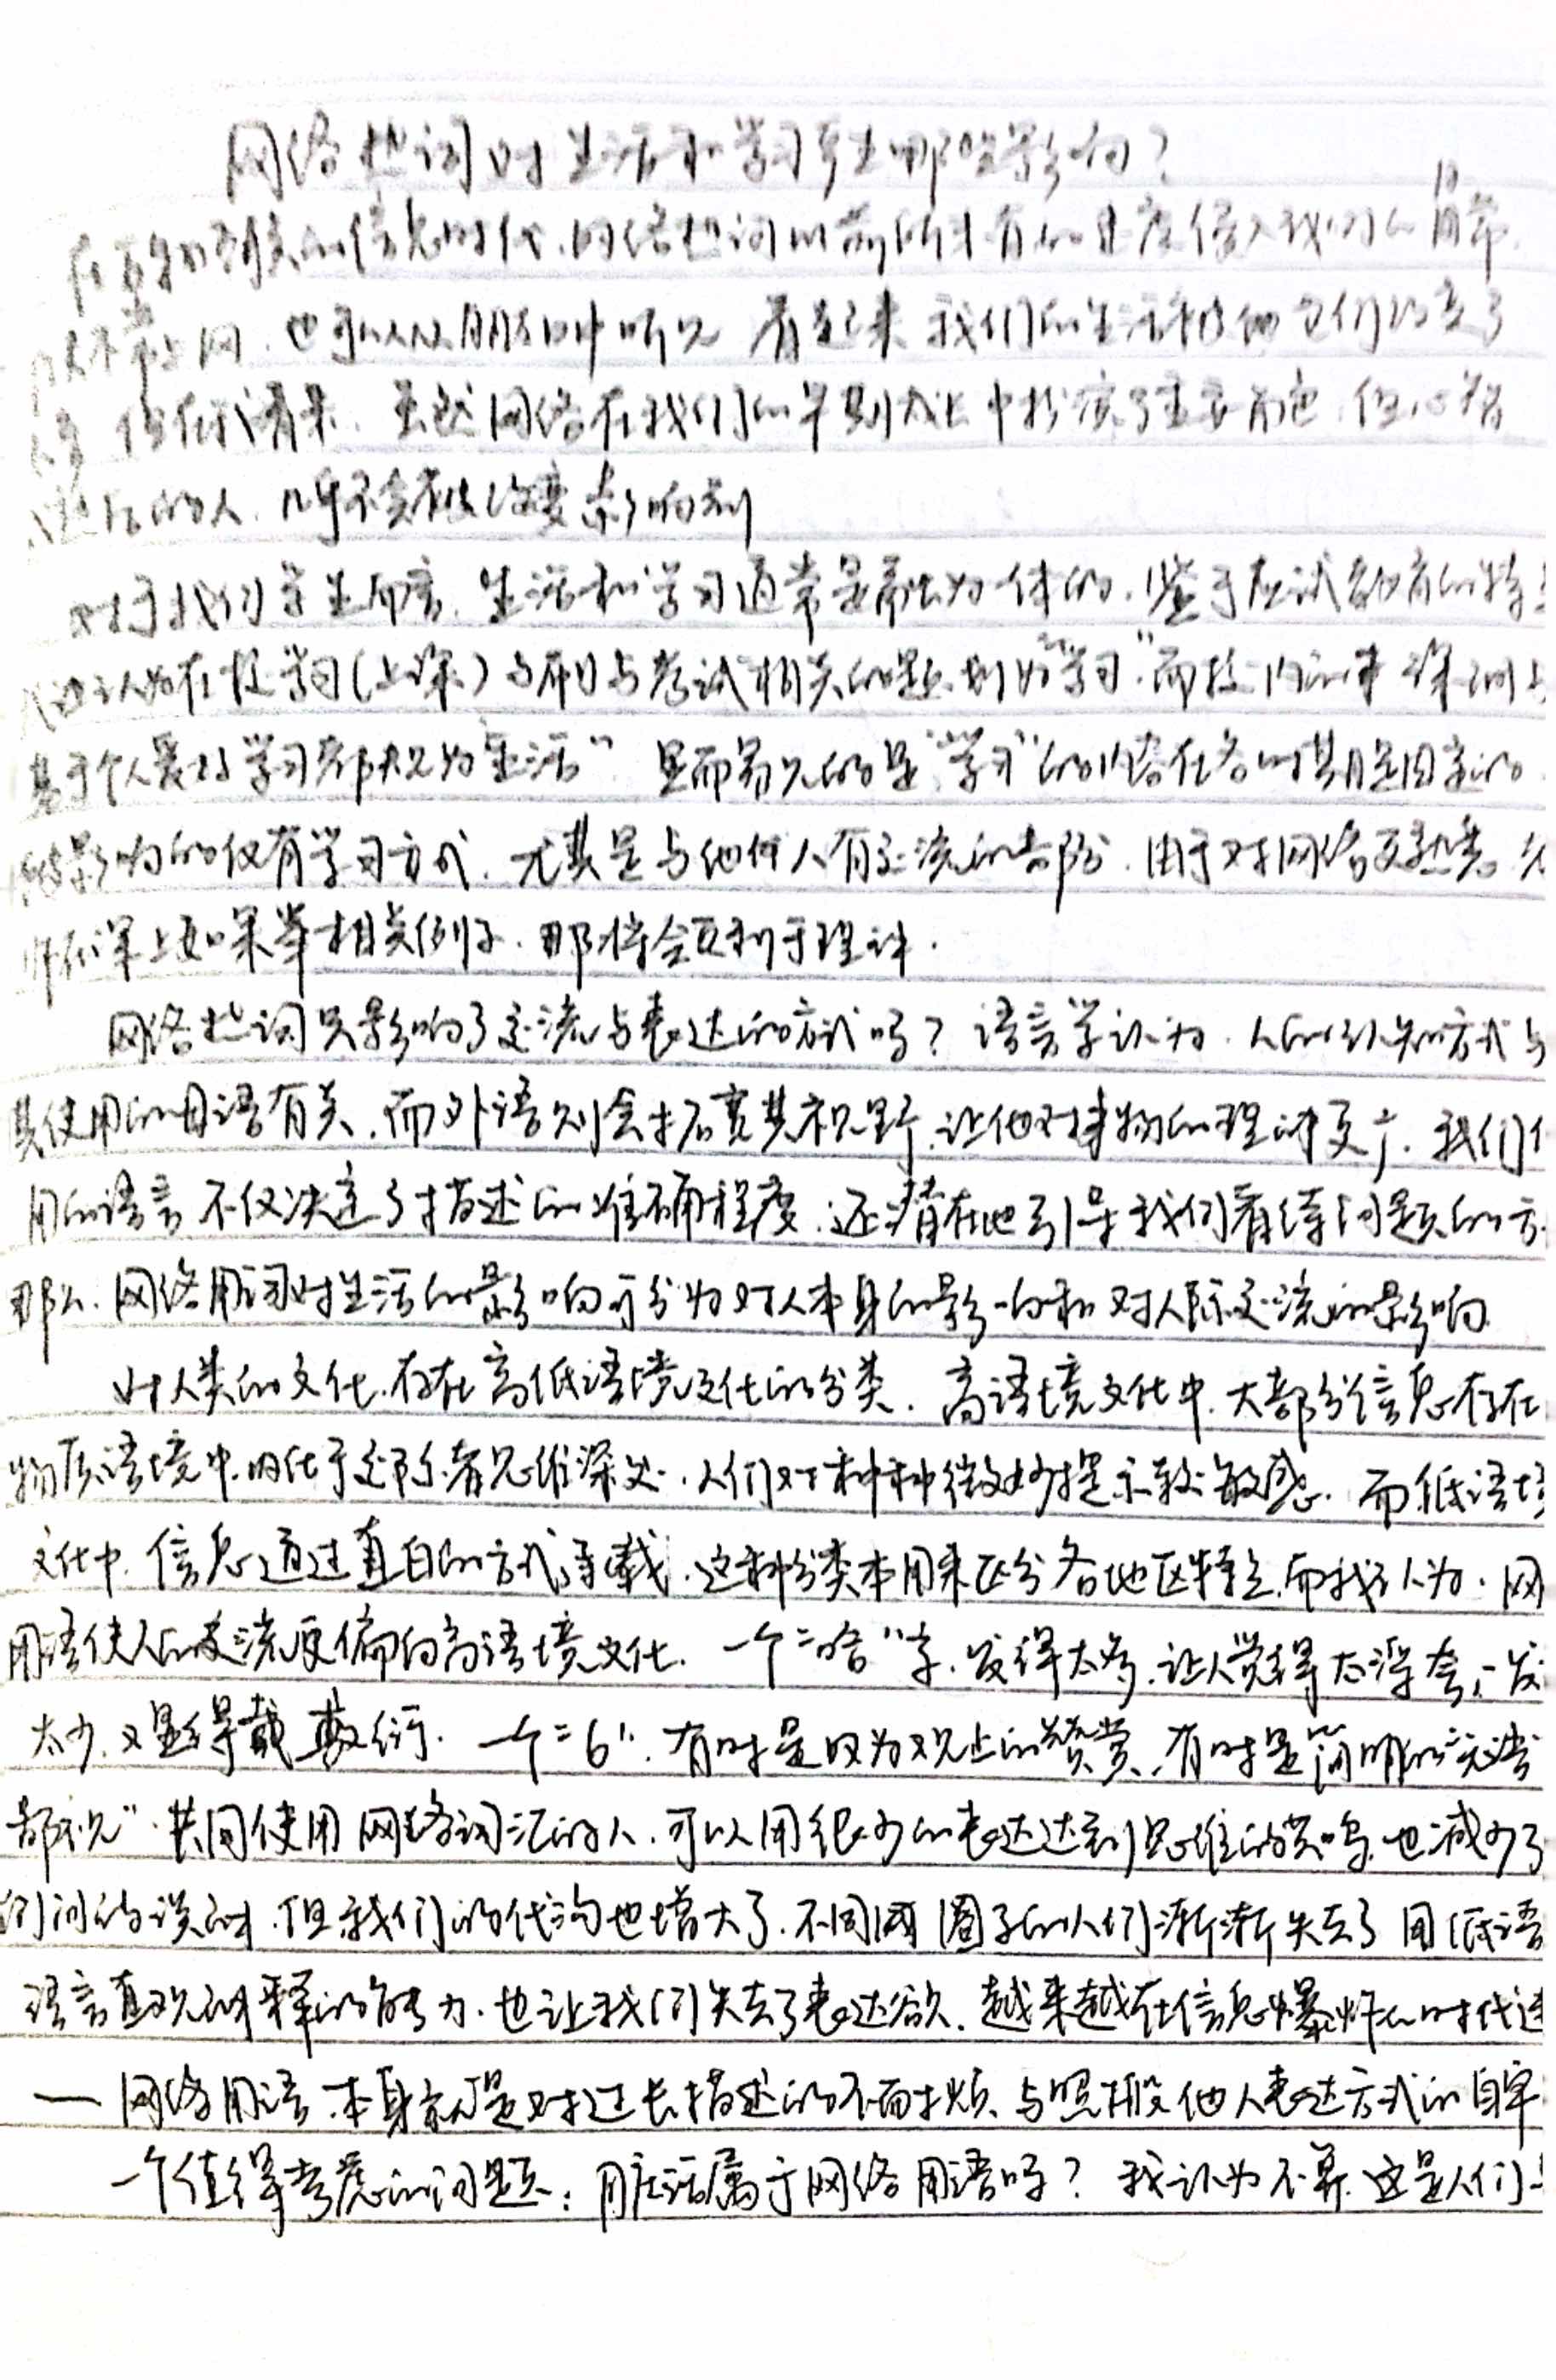 网络热词对生活和学习产生哪些影响？
的信息时代，网络热词以前所未有的速度侵入我们的日常
不常上网，也可以从朋友口中听见 看起来 我们的生活被他它们改变了
但在我看来，虽然网络在我们的早期成长中扮演了重要角色，但心智
的人，几乎不会被改变影响到
对于我们学生而言，生活和学习通常是融为一体的，鉴于应试教育的特
认为在校学习（上课）与和与考试相关的题划为“学习”，而
基于个人爱好学习都视为“生活” 显而易见的是“学习”的内容在各时期是固定的
影响的仅有学习方式，尤其是与他人有交流的部分，由于对网络更熟悉
师在课上如果举相关例子，那将会更利于理解．
网络热词只影响了交流与表达的方式吗？语言学认为，人的认知方式与
其使用的母语有关，而外语则会拓宽其视野，让他对事物的理解更广．我们
用的语言 不仅决定了描述的准确程度，还潜在地引导我们看待问题的方
那么，网络用词对生活的影响可分为对人本身的影响和对人际交流的影响
对人类的文化，存在高低语境文化的分类．高语境文化中，大部分信息存在
物质语境中，内化于交际者思维深处．人们对种种微妙提示较敏感．而低语境
文化中，信息通过直白的方式承载．这种分类本用来区分各地区特征，而我认为，网
用语使人的交流更偏向高语境文化．一个“哈”字，发得太多，让人觉得太浮夸，发
太少，又显得敷衍．一个“6”，有时是因为观止的赞赏，有时是简明的“无语
都说”．共同使用网络词汇的人，可以用很少的表达达到思维的共鸣，也减少了
们间的误解，但我们的代沟也增大了，不同圈子的人们渐渐失去了用低语
语言直观解释的能力，也让我们失去了表达欲，越来越在信息爆炸的时代迷
—网络用语，本身就是对过长描述的不耐烦，与照搬他人表达方式的自卑
一个值得考虑的问题：用庄话属于网络用语吗？我认为不算，这是人们